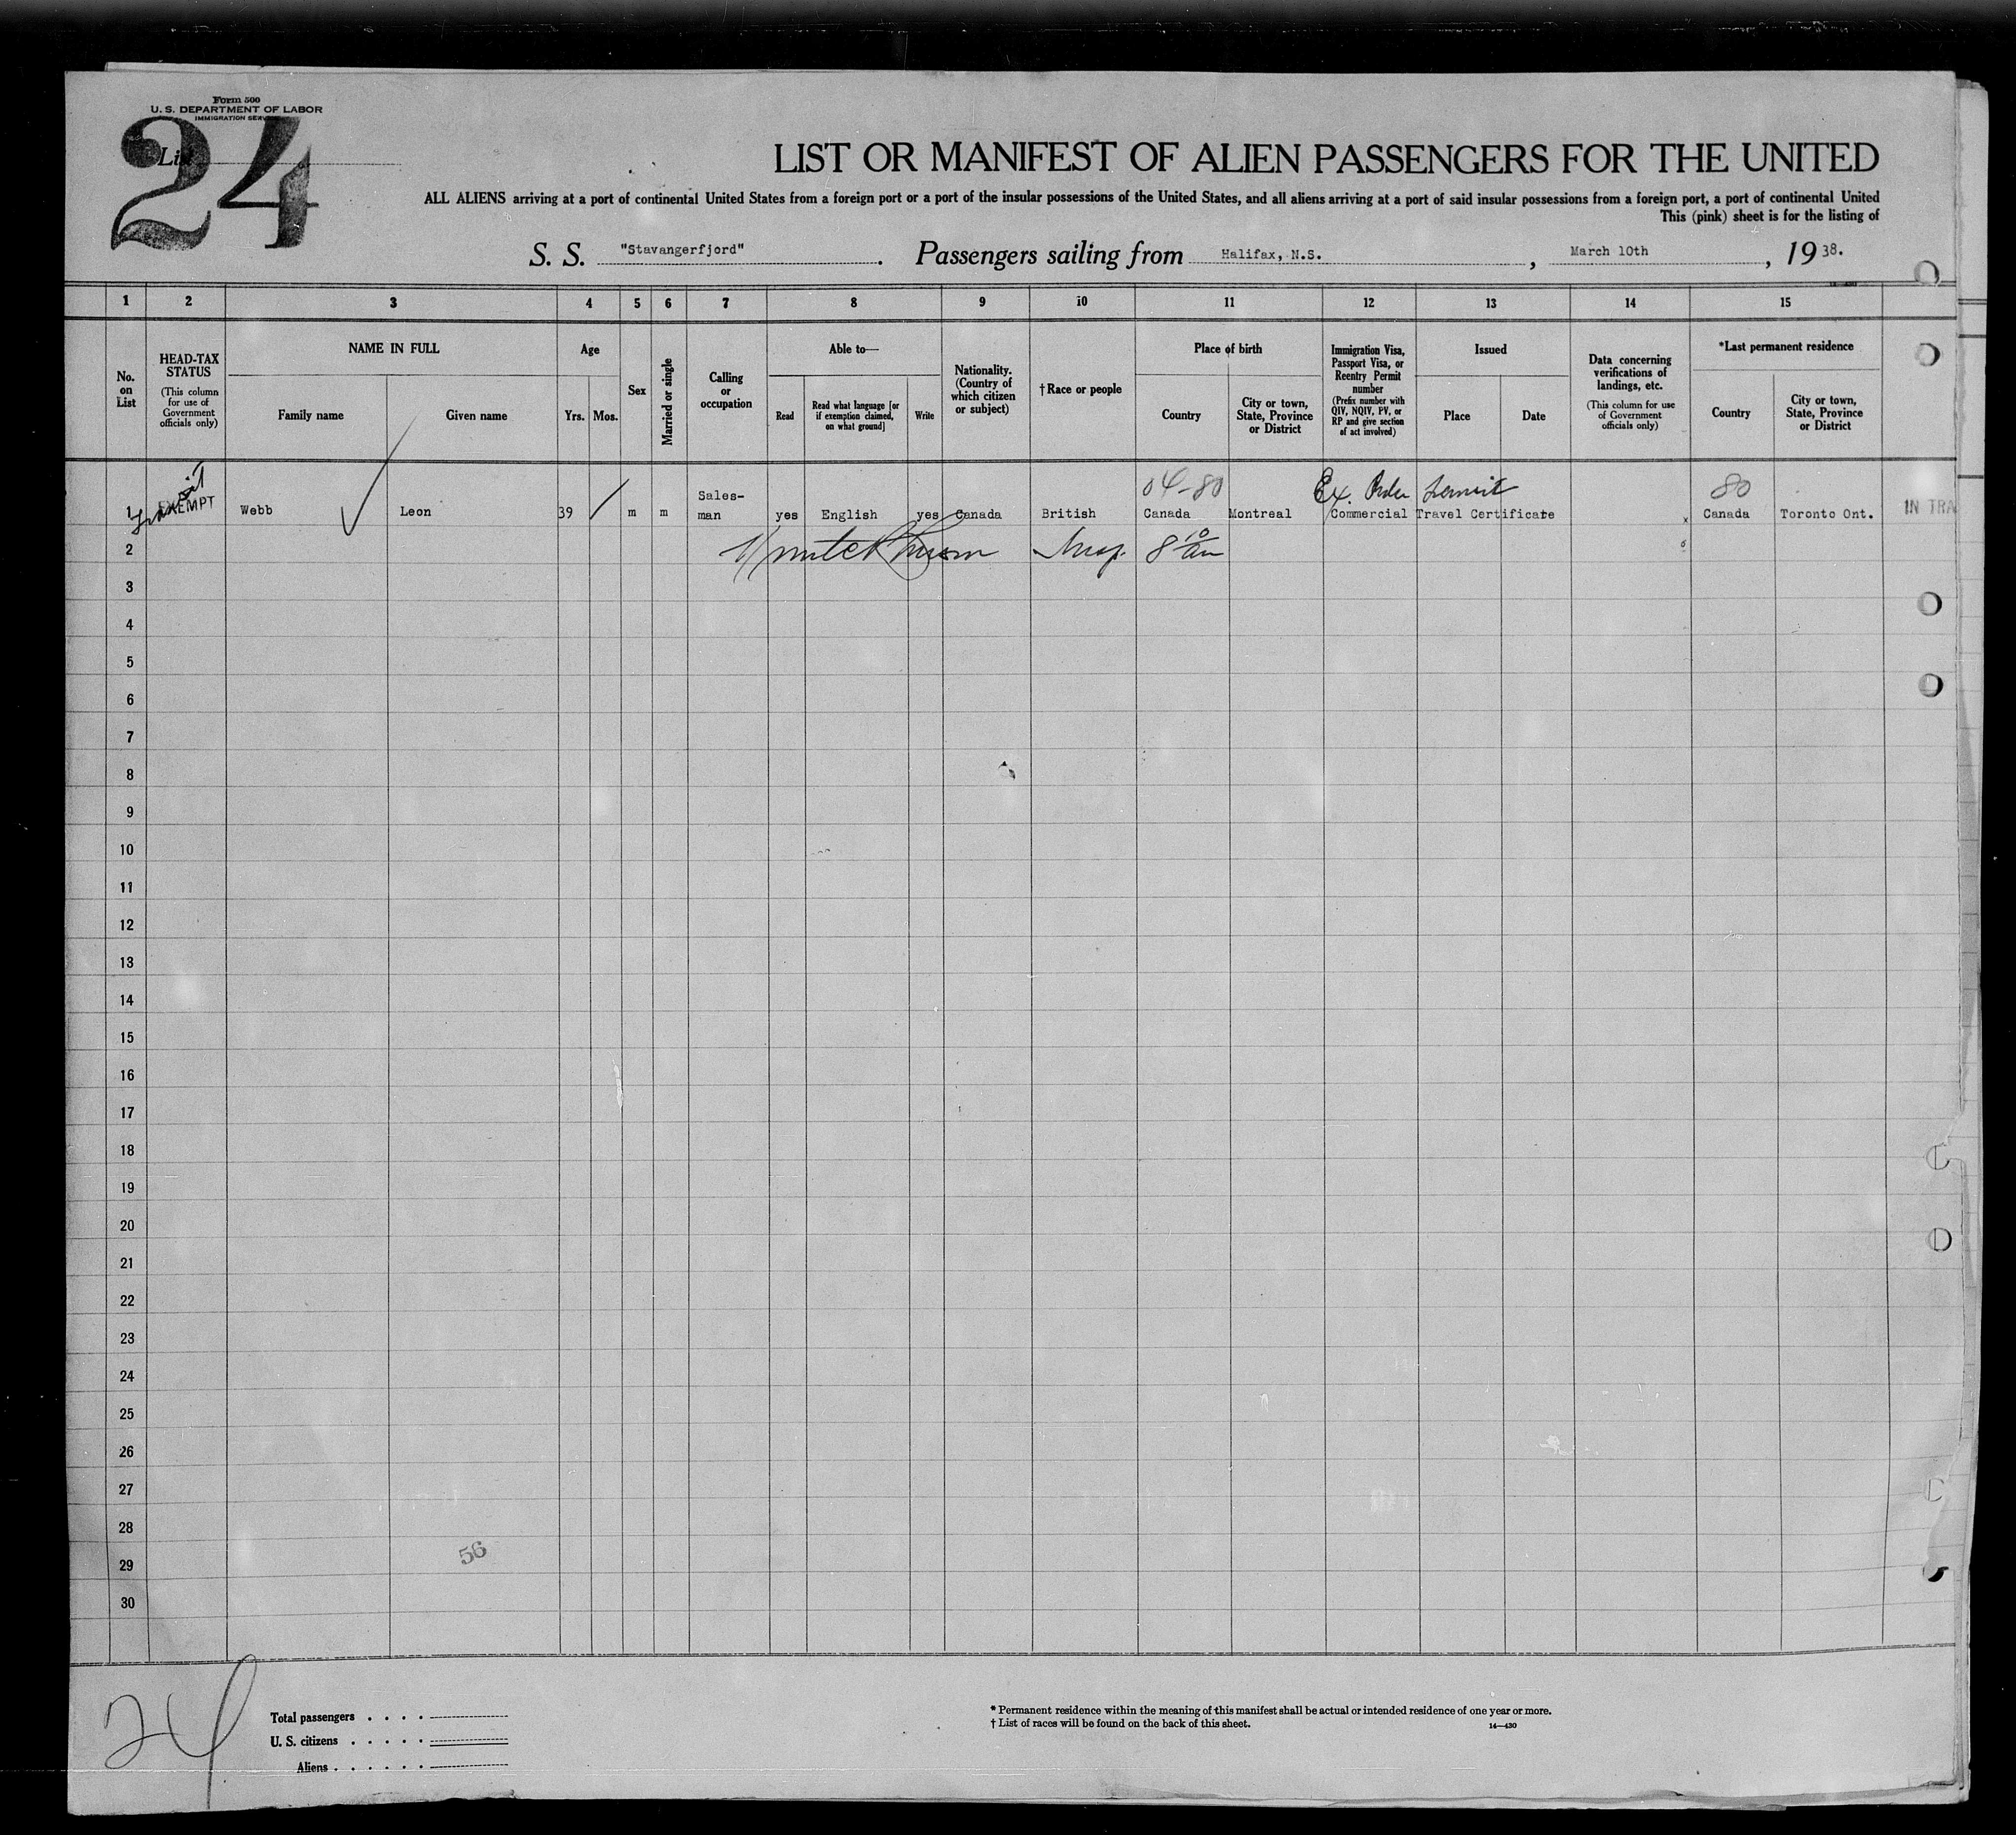 Form 500
U. S. DEPARTMENT OF LABOR
IMMIGRATION SERVICE
24
List
LIST OR MANIFEST OF ALIEN PASSENGERS FOR THE UNITED
ALL ALIENS arriving at a port of continental United States from a foreign port or a port of the insular possessions of the United States, and all aliens arriving at a port of said insular possessions from a foreign port, a port of continental United
This (pink) sheet is for the listing of
S. S. "Stavangerfjord". Passengers sailing from Halifax, N.S., March 10th, 1938.
1 2 3 4 5 6 7 8 9 10 11 12 13 14 15
No. on List
HEAD-TAX STATUS
(This column for use of Government officials only)
NAME IN FULL
Family name
Given name
Age
Yrs. Mos.
Sex
Married or single
Calling or occupation
Able to—
Read
Read what language [or if exemption claimed, on what ground]
Write
Nationality. (Country of which citizen or subject)
† Race or people
Place of birth
Country
City or town, State, Province or District
Immigration Visa, Passport Visa, or Reentry Permit number
(Prefix number with QIV, NQIV, PV, or RP and give section of act involved)
Issued
Place
Date
Data concerning verifications of landings, etc.
(This column for use of Government officials only)
*Last permanent residence
Country
City or town, State, Province or District
Transit
04-80 Ex. Order 80
1 EXEMPT Webb Leon 39 m m Sales-man yes English yes Canada British Canada Montreal Commercial Travel Certificate x Canada Toronto Ont. IN TRA
2 Insp. 8 10 am
3
4
5
6
7
8
9
10
11
12
13
14
15
16
17
18
19
20
21
22
23
24
25
26
27
28
29
30
56
24
Total passengers . . . .
U. S. citizens . . . . .
Aliens . . . . . .
* Permanent residence within the meaning of this manifest shall be actual or intended residence of one year or more.
† List of races will be found on the back of this sheet.
14—430